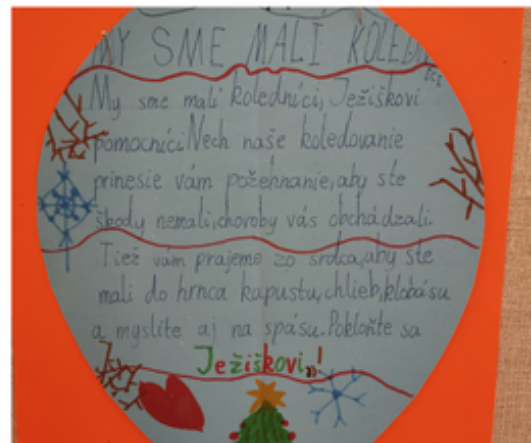 MY SME MALI KOLEDNÍCI
My sme mali koledníci, Ježiškovi
pomocníci. Nech naše koledovanie
prinesie vám požehnanie, aby ste
škody nemali, choroby vás obchádzali.
Tiež vám prajeme zo srdca, aby ste
mali do hrnca kapustu, chlieb, klobásu
a myslite aj na spásu. Pokloňte sa
Ježiškovi"!